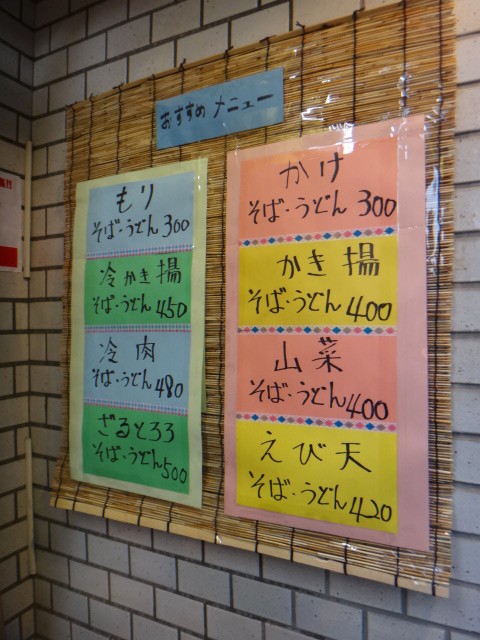 おすすめメニュー
もり
そば・うどん 300
冷かき揚
そば・うどん 450
冷肉
そば・うどん 480
ざるとろろ
そば・うどん 500
かけ
そば・うどん 300
かき揚
そば・うどん 400
山菜
そば・うどん 400
えび天
そば・うどん 420